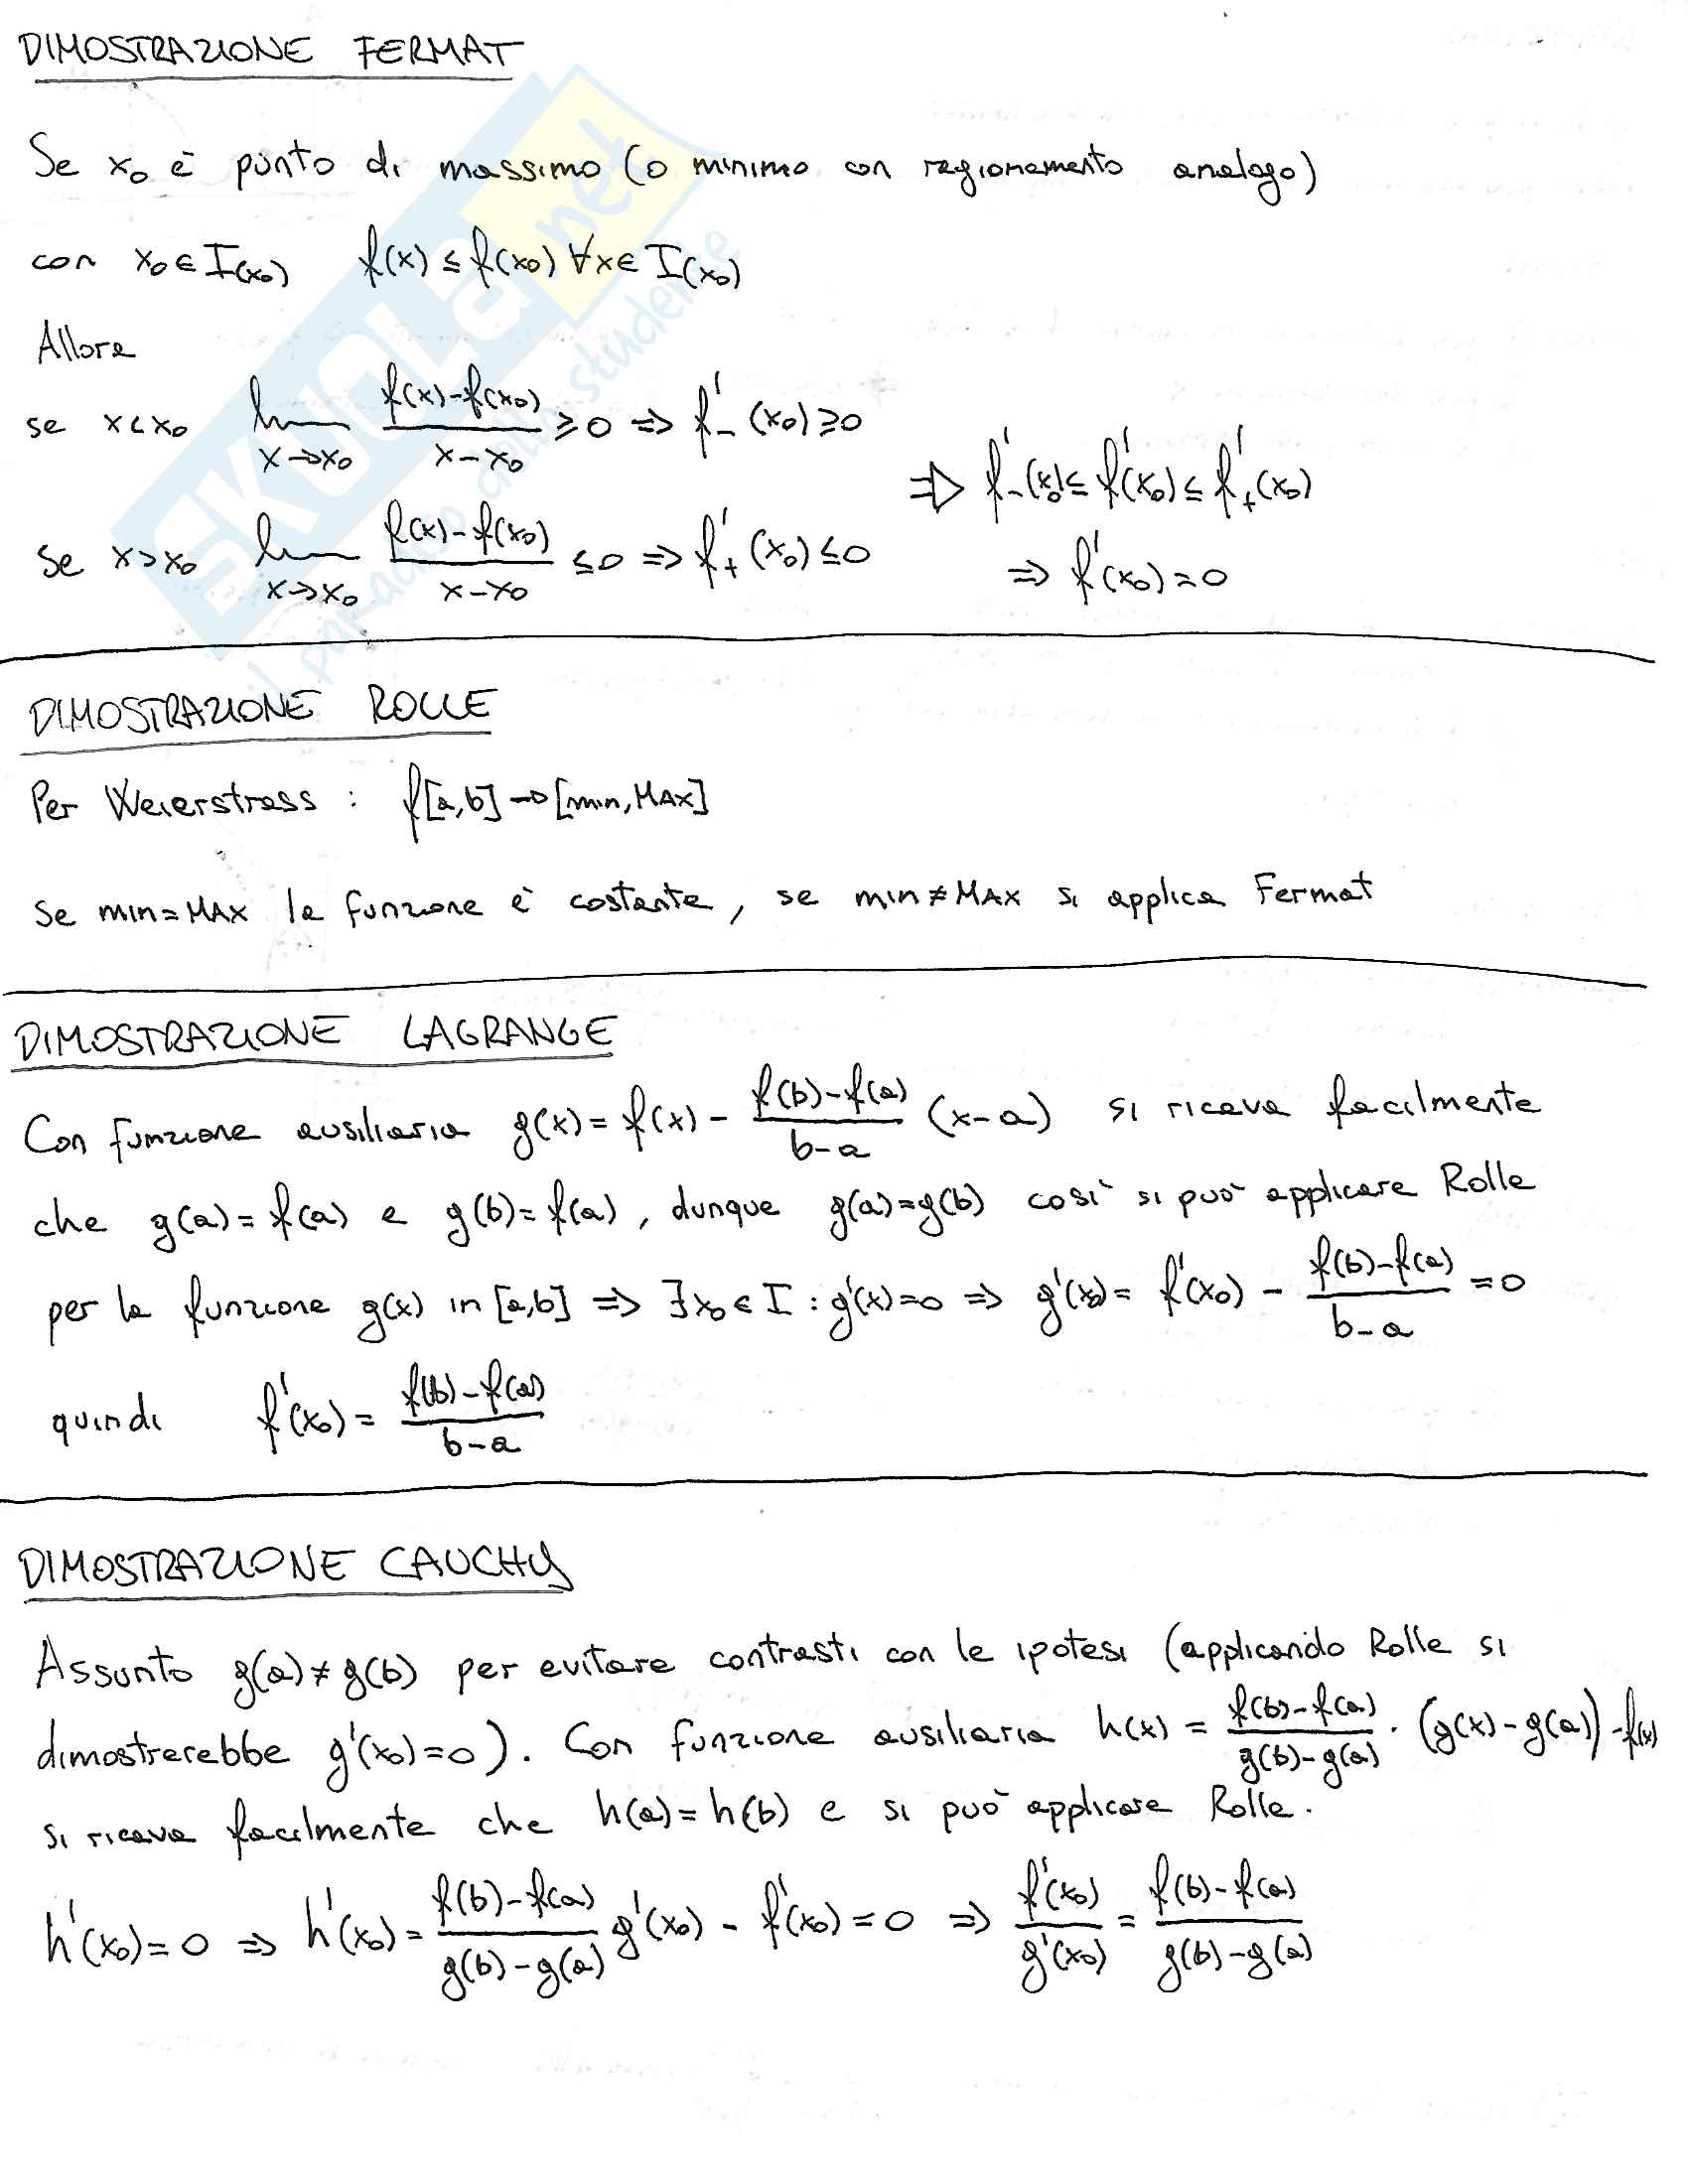 DIMOSTRAZIONE FERMAT
Se x₀ è punto di massimo (o minimo con ragionamento analogo)
con x₀ ∈ I(x₀) f(x) ≤ f(x₀) ∀x ∈ I(x₀)
Allora
se x < x₀ lim x→x₀ (f(x)-f(x₀))/(x-x₀) ≥ 0 => f'₋(x₀) ≥ 0
=> f'₋(x₀) ≤ f'(x₀) ≤ f'₊(x₀)
se x > x₀ lim x→x₀ (f(x)-f(x₀))/(x-x₀) ≤ 0 => f'₊(x₀) ≤ 0
=> f'(x₀) = 0
DIMOSTRAZIONE ROLLE
Per Weierstrass : f[a,b] → [min, MAX]
Se min = MAX la funzione è costante, se min ≠ MAX si applica Fermat
DIMOSTRAZIONE LAGRANGE
Con funzione ausiliaria g(x) = f(x) - (f(b)-f(a))/(b-a) (x-a) si ricava facilmente
che g(a) = f(a) e g(b) = f(a), dunque g(a) = g(b) così si può applicare Rolle
per la funzione g(x) in [a,b] => ∃x₀ ∈ I : g'(x) = 0 => g'(x₀) = f'(x₀) - (f(b)-f(a))/(b-a) = 0
quindi f'(x₀) = (f(b)-f(a))/(b-a)
DIMOSTRAZIONE CAUCHY
Assunto g(a) ≠ g(b) per evitare contrasti con le ipotesi (applicando Rolle si
dimostrerebbe g'(x₀) = 0). Con funzione ausiliaria h(x) = (f(b)-f(a))/(g(b)-g(a)) · (g(x)-g(a)) - f(x)
si ricava facilmente che h(a) = h(b) e si può applicare Rolle.
h'(x₀) = 0 => h'(x₀) = (f(b)-f(a))/(g(b)-g(a)) g'(x₀) - f'(x₀) = 0 => f'(x₀)/g'(x₀) = (f(b)-f(a))/(g(b)-g(a))
SKUOLa.net
il paradiso dello studente